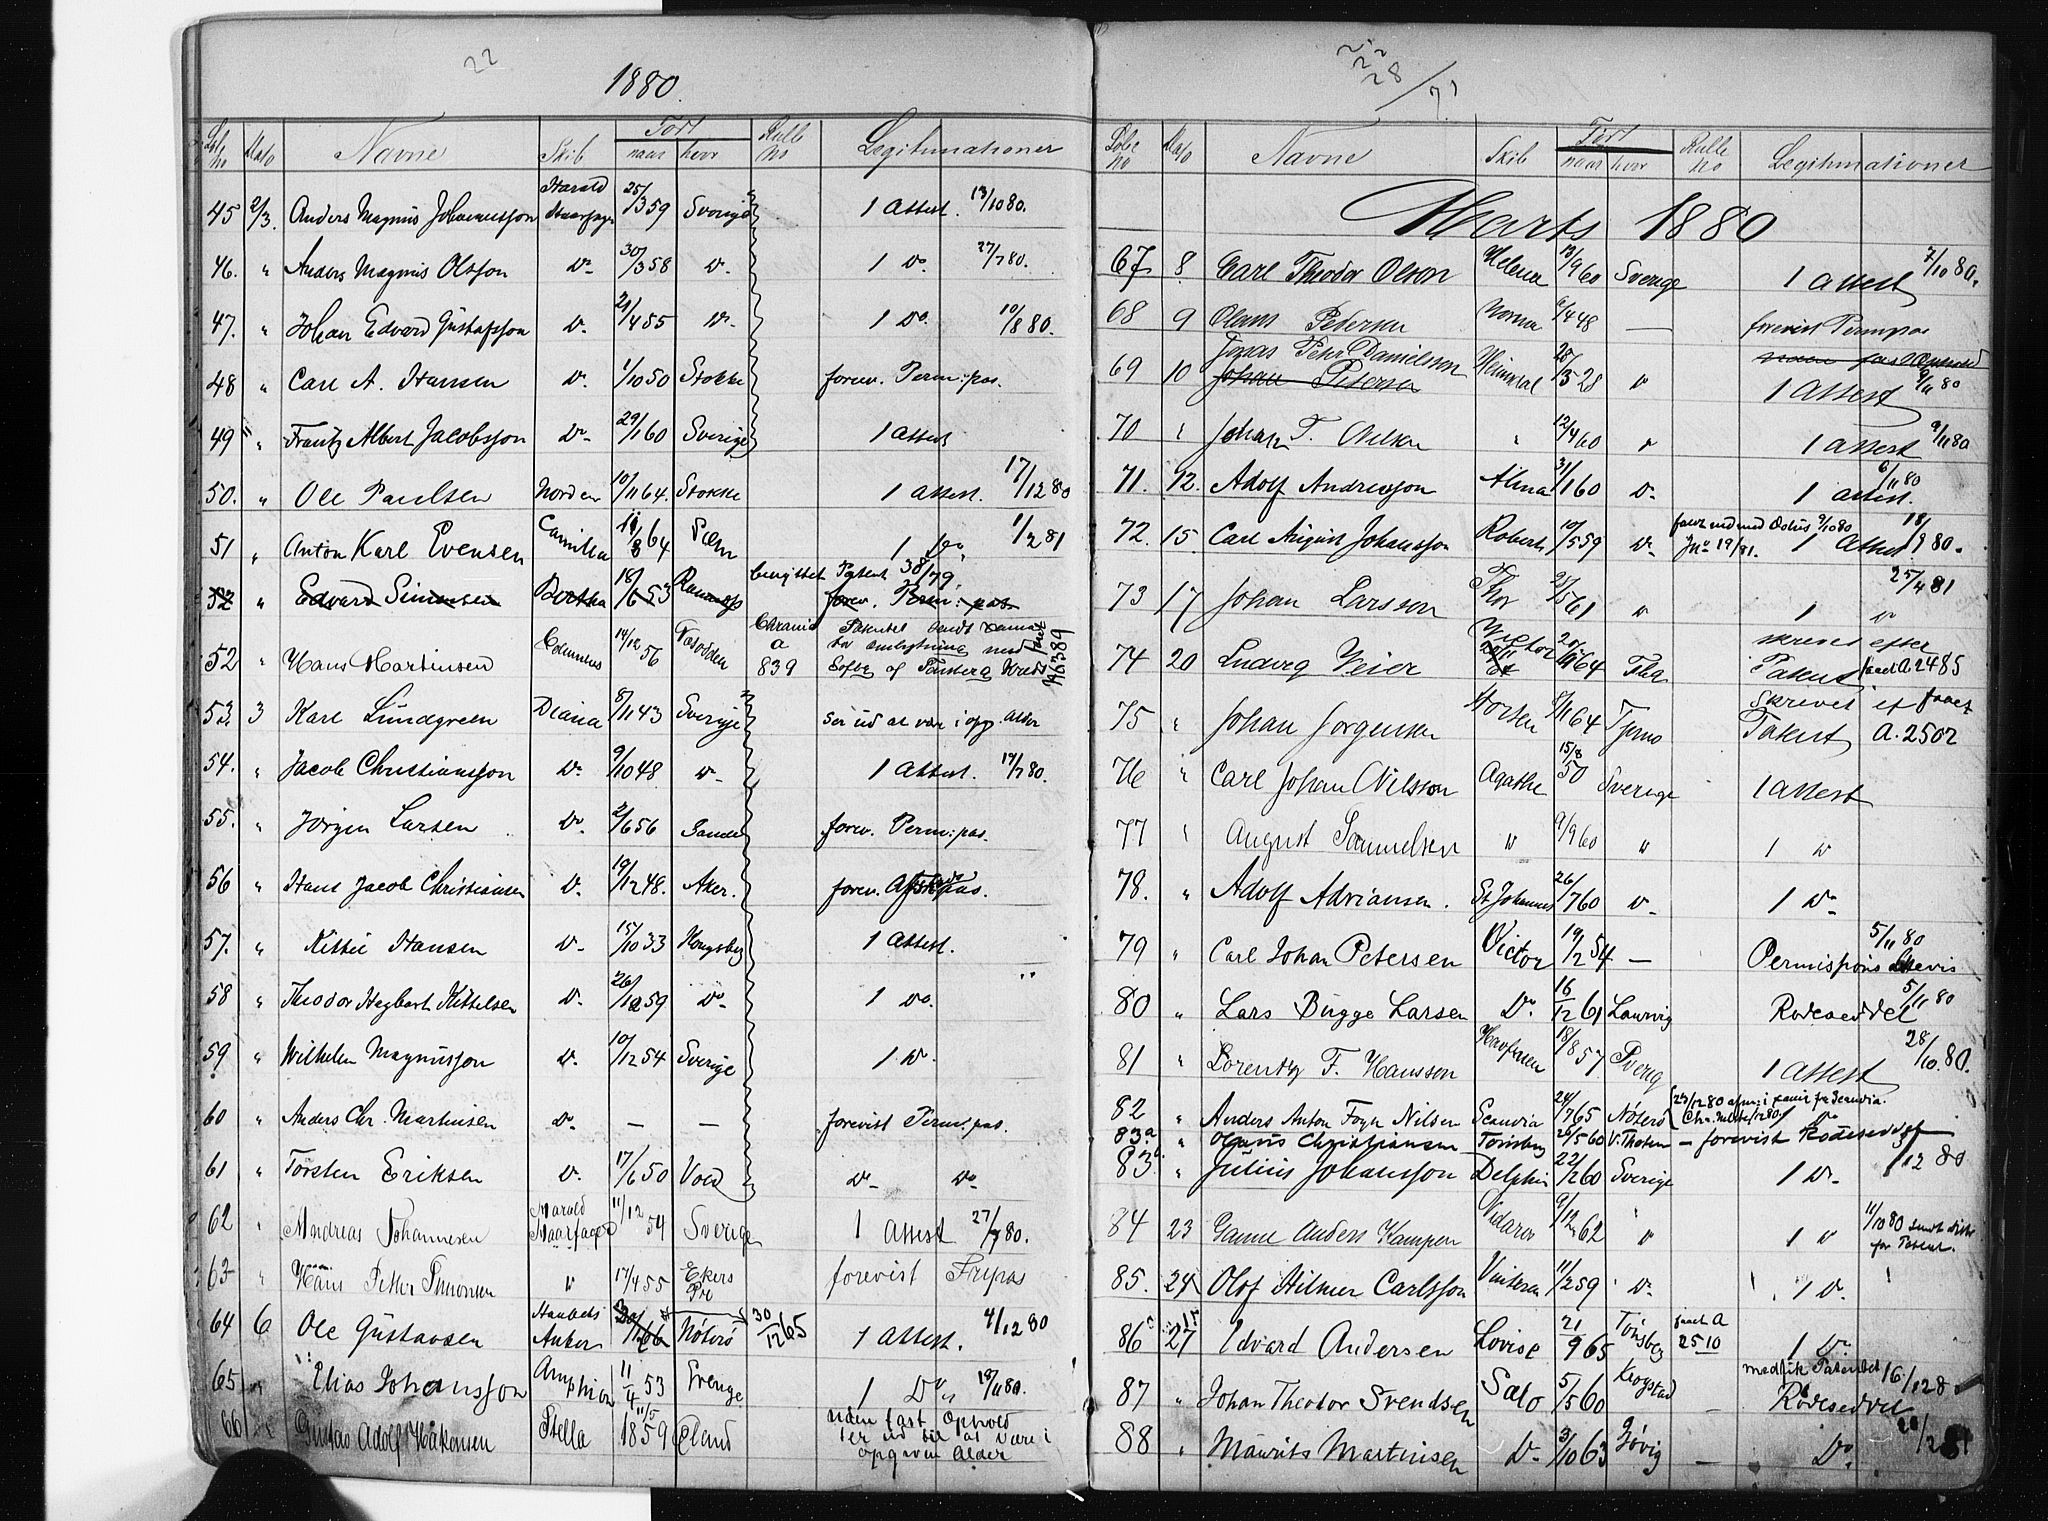 22
1880.
Løb No Dato Navne Skib Født naar hvor Rulle No Legitimationer
45 2/3. Anders Magnus Johannesson Harald Haarfager 25/3 59 Sverige 1 Attest. 13/10 80.
46. " Anders Magnus Olsson Do 30/3 58 Do. 1 Do. 27/7 80.
47. " Johan Edvard Gustafsson Do. 21/4 55 Do. 1 Do. 10/8 80.
48 " Carl A. Hansen Do. 1/10 50 Stokke forev. Perm: pas.
49 " Frantz Albert Jacobsson Do. 29/1 60 Sverige 1 Attest
50. " Ole Paulsen Norden 10/11 64. Stokke 1 Attest. 17/12 80
51 " Anton Karl Evensen Camilla 11/8 64 Sem 1 Do. 1/2 81
52 " Edvard Simensen Bertha 18/6 53 Ramnæs benyttet Patent 38/79. forev. Perm: pas
52 " Hans Martinsen Columbus 14/12 56 839 Patentet sendt No 389
53. 3 Karl Lundgreen Diana 8/11 43 Sverige Ser ud at være i opg. Alder
54. " Jacob Christiansson Do. 9/10 48 Do. 1 Attest. 17/7 80.
55. " Jørgen Larsen Do. 2/6 56 Sande forev. Perm: pas.
56 " Hans Jacob Christiansen Do. 19/12 48. Aker. forev. Afsk:pas.
57. " Kittil Hansen Do. 15/10 33 Kongsberg 1 Attest.
58 " Theodor Hagbart Kittelsen Do. 26/12 59 Do. 1 Do. "
59 " Wilhelm Magnusson Do. 10/12 54 Sverige 1 Do.
60 " Anders Chr. Martinsen Do. — — forevist Perm: pas.
61 " Torsten Eriksen Do. 17/6 50 Vold Do. Do.
62 " Andreas Johannesen Harald Haarfager 11/12 54 Sverige 1 Attest 27/7 80.
63 " Hans Petter Simonsen " 17/4 55 Ekers forevist Fripas
64 6 Ole Gustavsen Anker Nøterø 30/12 65 1 Attest. 4/12 80
65 " Elias Johansson Amphion 11/4 53 Sverige 1 Do. 18/11 80.
66 " Gustav Adolf Håkonsen Stella 11/5 1859 Øland uden fast Ophold ser ud til at være i opgiven Alder
22
28/7
Løbe No Dato Navne Skib Født naar hvor Rulle No Legitimationer
Marts 1880
67 8. Carl Theodor Olson Helena 13/9 60 Sverige 1 Attest 7/10 80.
68 9 Olaus Pedersen Norma 6/4 48 — forevist Permpas
69 10 Jonas Petr Danielsson Johan Petersen Heimdal 28/3 28 " uden fast Ophold 1 Attest 9/11 80
70 " Johan T. Nilsen " 12/4 60 " 1 Attest 9/11 80
71. 12. Adolf Andreasson Alma 31/1 60 Do. 1 Attest. 6/11 80
72. 15. Carl August Johansson Robert 10/5 59 Do. Jno 19/81. 1 Attest 18/9 80.
73 17 Johan Larsson Thor 27/5 61 " 1 " 25/4 81
74 20 Ludvig Veier Victor 64 skrevet efter Patent faaet A. 2485
75 " Johan Jorgensen Horten 8/11 64 Tjømo Skrevet ef Patent faaet A. 2502
76 " Carl Johan Nilsson Agathe 15/8 50 Sverige 1 Attest
77 " August Samuelsen " 9/9 60 " 1 "
78. " Adolf Adriansen. St Johannes 26/7 60 Do. 1 Do.
79 " Carl Johan Petersen Victor 19/2 54 — Permissions bevis 5/11 80
80 " Lars Bugge Larsen Do. 16/12 61 Laurvig Rodeseddel 5/11 80
81 " Lorentz F. Hansson Havfruen 18/8 57 Sverig 1 Attest 28/10. 80.
82 " Anders Anton Foyn Nilsen Scandia 24/7 65 Nøterø 23/12 80 afm: i fra Scandia. 1 Do
83a " Olavus Christiansen Tønsberg 26/5 60 V. Thoten — forevist Rodeseddel
83b. " Julius Johansson Delphin 22/12 60 Sverige 1 Do. 12 80
84 23 Anders Kampen Vidaren 9/12 62 " 1 " 11/10 80 sendt for Patent.
85. 24 Olof Hilmer Carlsson Vinteren 11/2 59 Do. 1 Do. "
86 27 Edvard Andersen Lovise 21/9 65 Tønsberg faaet A 2510 1 Do
87 " Johan Theodor Svendsen Salo 5/5 60 Krogstad — medfik Patentet Rodeseddel 16/12 8
88 " Mauritz Martinsen Do. 3/10 63 Gjøvig — Do.